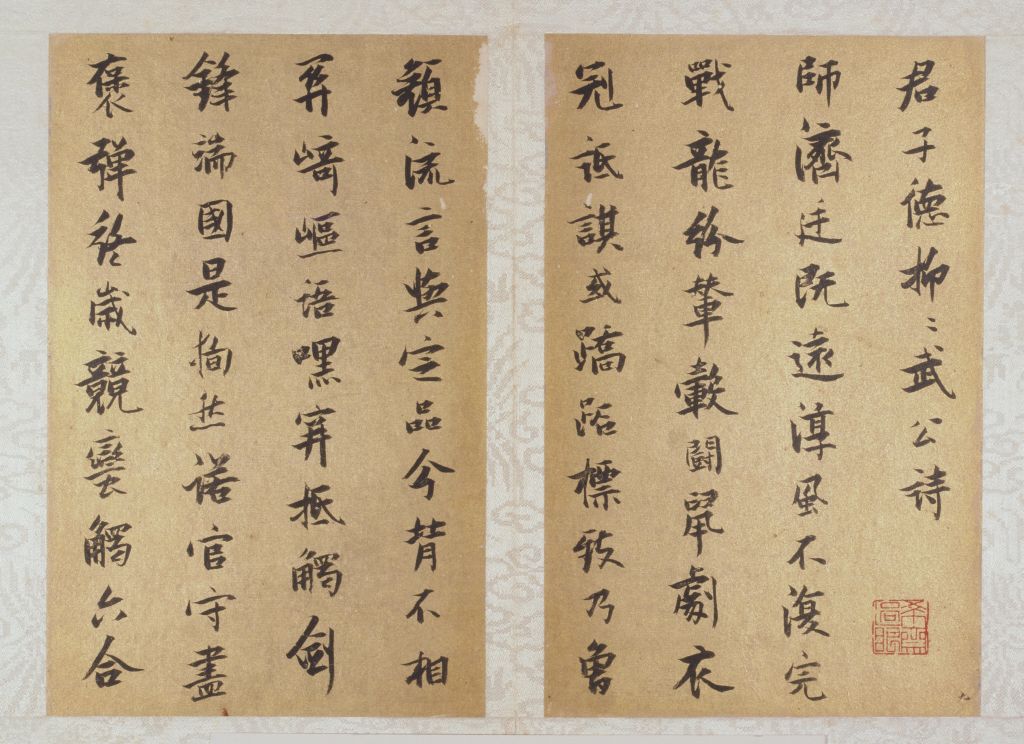 君子德抑〻武公詩
師濟廷既遠淳風不復完
戰龍紛輦轂鬪鼠劇衣
冠詆諆或蹻跖標致乃曾
顏流言與定品今背不相
崎嶇語嘿穽抵觸劍
鋒端國是徇然諾官守盡
褒彈終歲競蠻觸六合